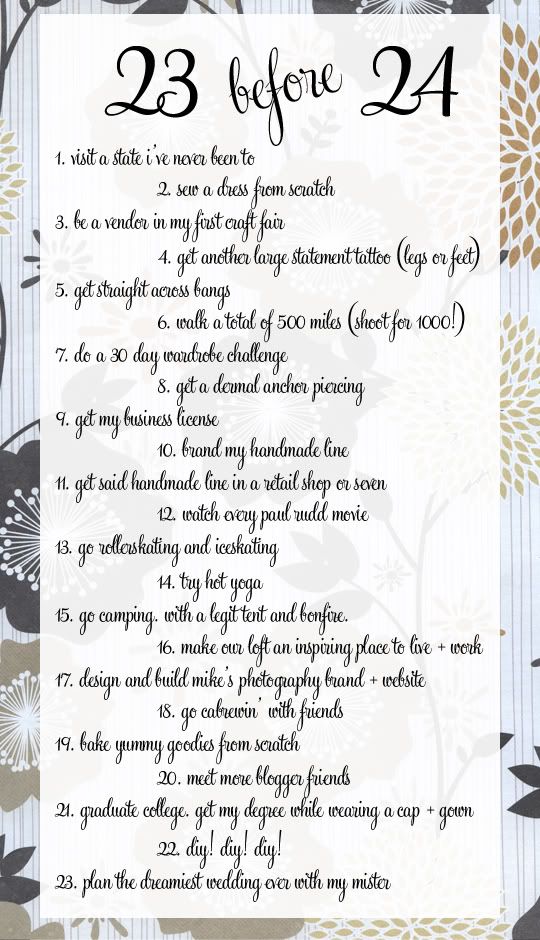 23 before 24
1. visit a state i've never been to
2. sew a dress from scratch
3. be a vendor in my first craft fair
4. get another large statement tattoo (legs or feet)
5. get straight across bangs
6. walk a total of 500 miles (shoot for 1000!)
7. do a 30 day wardrobe challenge
8. get a dermal anchor piercing
9. get my business license
10. brand my handmade line
11. get said handmade line in a retail shop or seven
12. watch every paul rudd movie
13. go rollerskating and iceskating
14. try hot yoga
15. go camping. with a legit tent and bonfire.
16. make our loft an inspiring place to live + work
17. design and build mike's photography brand + website
18. go cabrewin' with friends
19. bake yummy goodies from scratch
20. meet more blogger friends
21. graduate college. get my degree while wearing a cap + gown
22. diy! diy! diy!
23. plan the dreamiest wedding ever with my mister